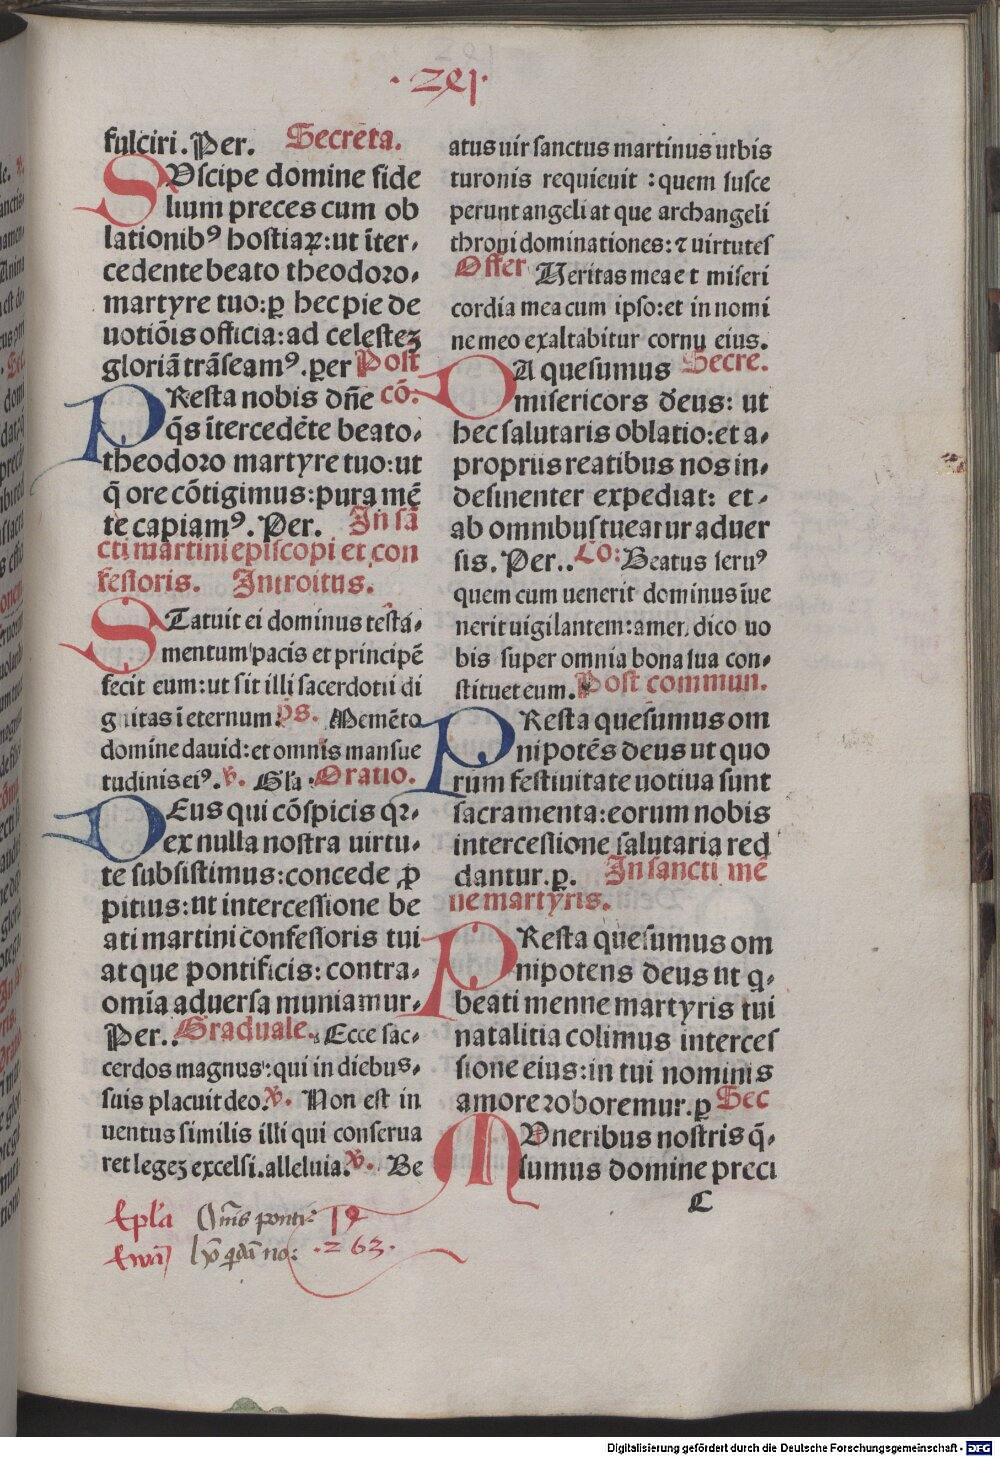 ·291·
fulciri. Per. Secreta.
SUscipe domine fide
lium preces cum ob
lationibꝰ hostiaꝝ: ut īter⸗
cedente beato theodoro⸗
martyre tuo: ꝑ hec pie de
uotiōis officia: ad celesteꝫ
gloriā trāseamꝰ. per Post
PResta nobis dn̄e cō.
q̄s ītercedēte beato⸗
theodoro martyre tuo: ut
q̄ ore cōtigimus: pura mē
te capiamꝰ. Per. In sā
cti martini episcopi et con
fessoris. Introitus.
STatuit ei dominus testā⸗
mentum pacis et principē
fecit eum: ut sit illi sacerdotii di
gnitas ī eternum. p̄s. Memēto
domine dauid: et omnis mansue
tudinis eiꝰ. ℣. Gl̄a. Oratio.
DEus qui cōspicis qꝛ⸗
ex nulla nostra uirtu⸗
te subsistimus: concede ꝓ
pitius: ut intercessione be
ati martini confessoris tui
atque pontificis: contra⸗
omīa aduersa muniamur⸗
Per.. Graduale. Ecce sac⸗
cerdos magnus: qui in diebus⸗
suis placuit deo. ℣. Non est in
uentus similis illi qui conserua
ret legeꝫ excelsi. alleluia. ℣. Be
atus uir sanctus martinus urbis
turonis requieuit: quem susce
perunt angeli at que archangeli
throni dominationes: ⁊ uirtutes
Offer Ueritas mea et miseri
cordia mea cum ipso: et in nomi
ne meo exaltabitur cornu eius.
DA quesumus Secre.
misericors deus: ut
hec salutaris oblatio: et a⸗
propriis reatibus nos in⸗
desinenter expediat: et⸗
ab omnibus tueatur aduer
sis. Per.. Co: Beatus seruꝰ
quem cum uenerit dominus īue
nerit uigilantem: amen dico uo
bis super omnia bona sua con⸗
stituet eum. Post commun.
PResta quesumus om
nipotēs deus ut quo
rum festiuitate uotiua sunt
sacramenta: eorum nobis
intercessione salutaria red
dantur. ꝑ. In sancti mē
ne martyris.
PResta quesumus om
nipotens deus ut q⸗
beati menne martyris tui
natalitia colimus interces
sione eius: in tui nominis
amore roboremur. ꝑ Sec
MUneribus nostris q̄⸗
sumus domine preci
C
Epl̄a Om̄is ponti: 19
Ewā
·263·
Digitalisierung gefördert durch die Deutsche Forschungsgemeinschaft - DFG